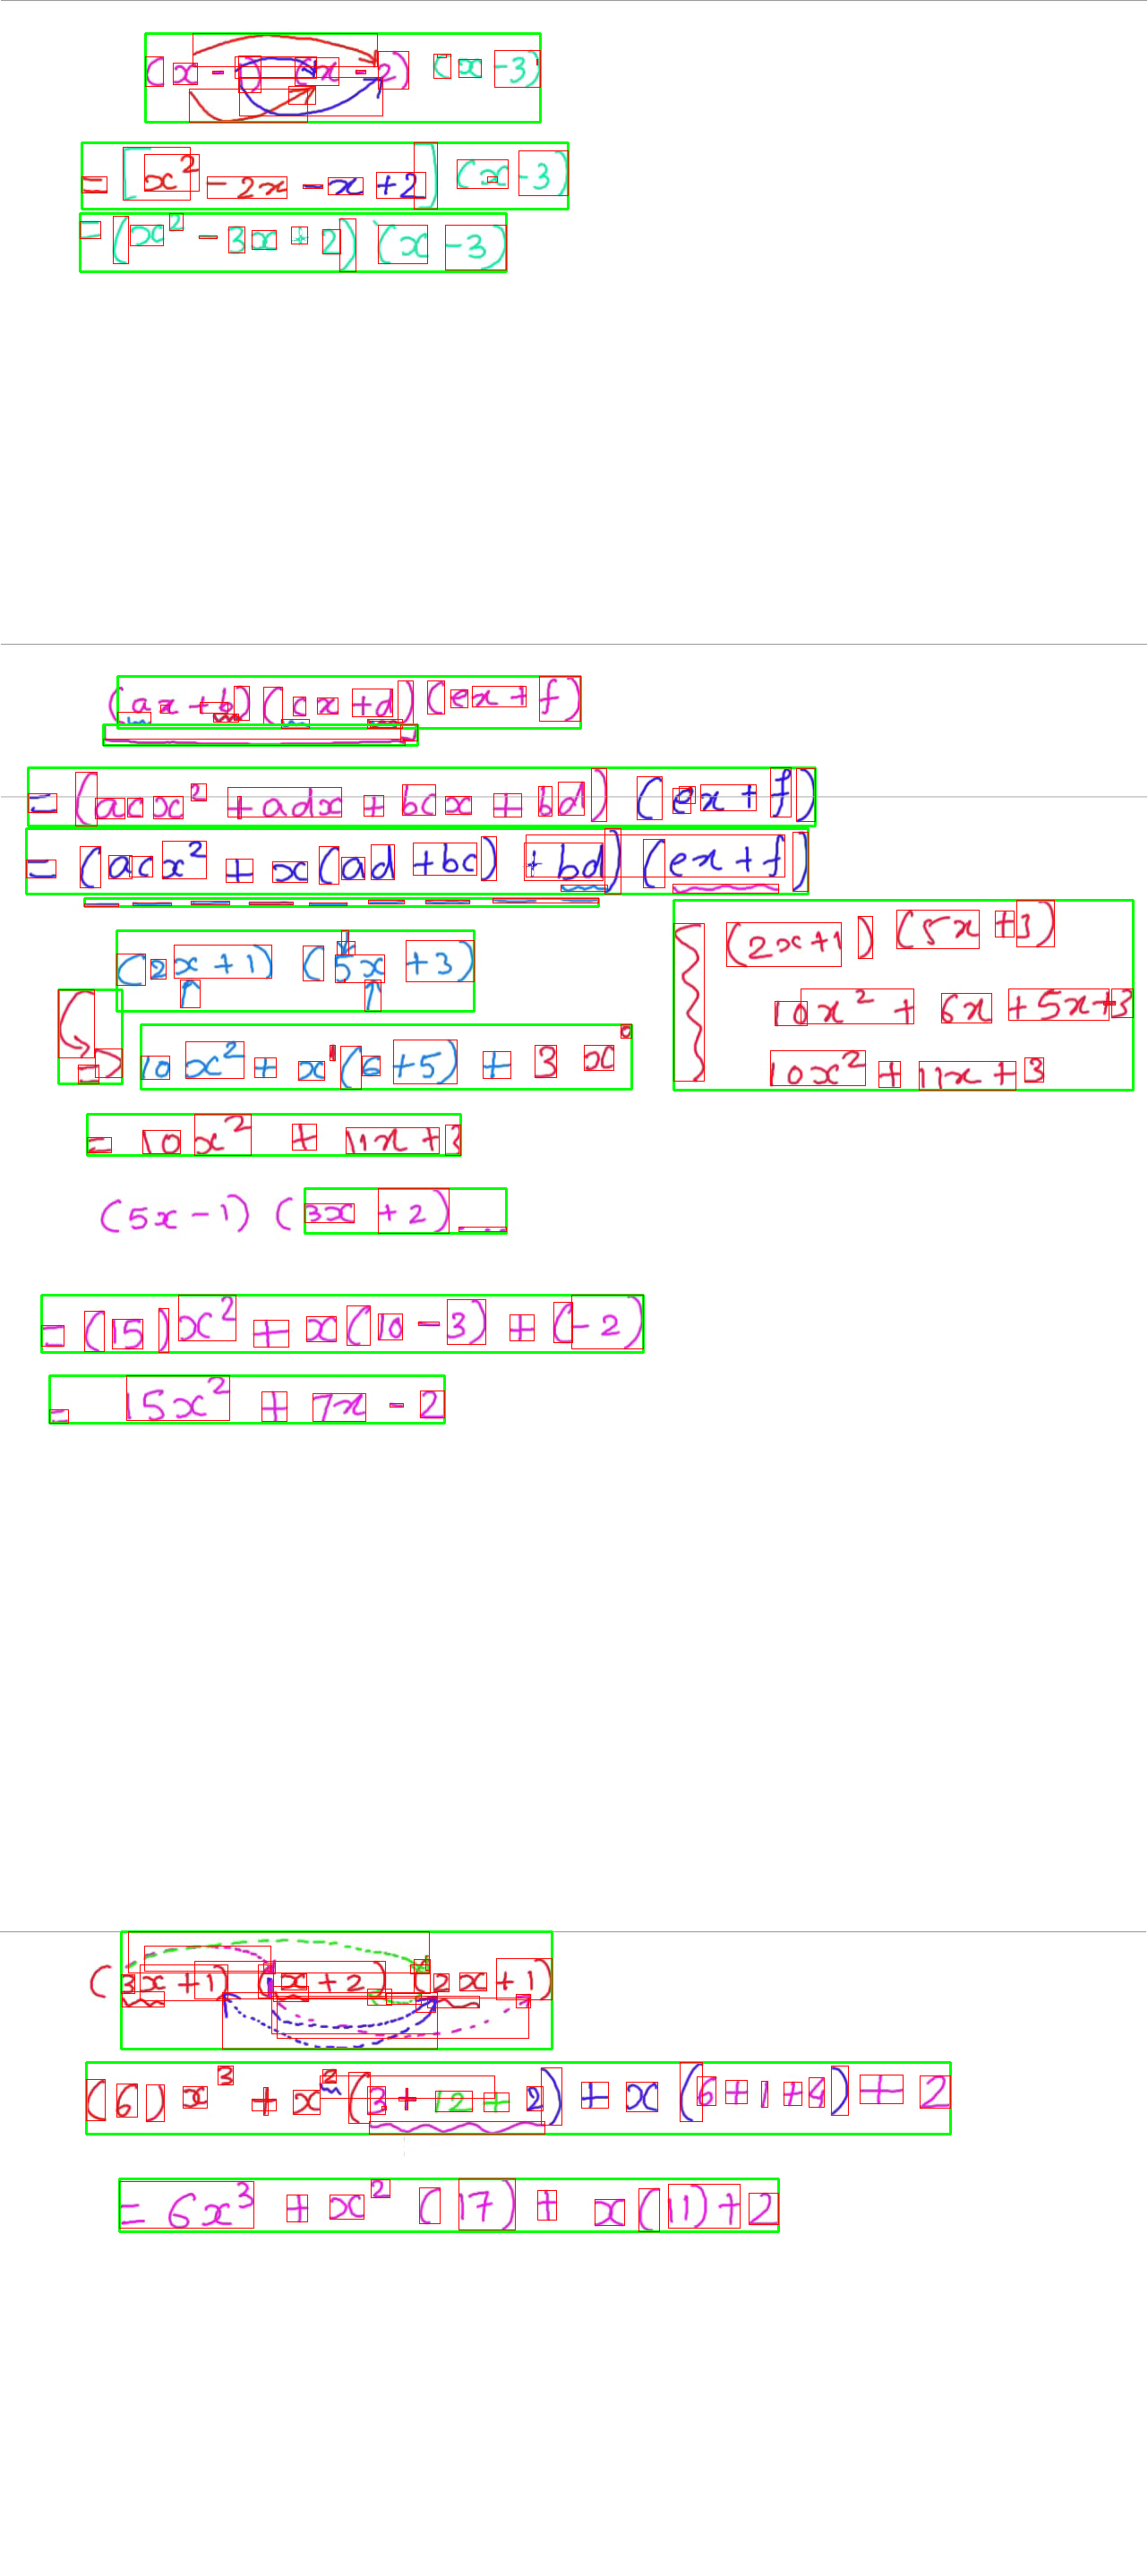 (x - 1) (x - 2) (x - 3)
= [x² - 2x - x + 2] (x - 3)
= (x² - 3x + 2) (x - 3)
(ax + b) (cx + d) (ex + f)
= (acx² + adx + bcx + bd) (ex + f)
= (acx² + x(ad + bc) + bd) (ex + f)
(2x + 1) (5x + 3)
=> 10x² + x¹(6 + 5) + 3 x⁰
= 10x² + 11x + 3
(2x+1) (5x + 3)
10x² + 6x + 5x + 3
10x² + 11x + 3
(5x - 1) (3x + 2)
= (15)x² + x(10 - 3) + (-2)
= 15x² + 7x - 2
(3x + 1) (x + 2) (2x + 1)
(6) x³ + x² (3 + 12 + 2) + x (6 + 1 + 4) + 2
= 6x³ + x² (17) + x(11) + 2